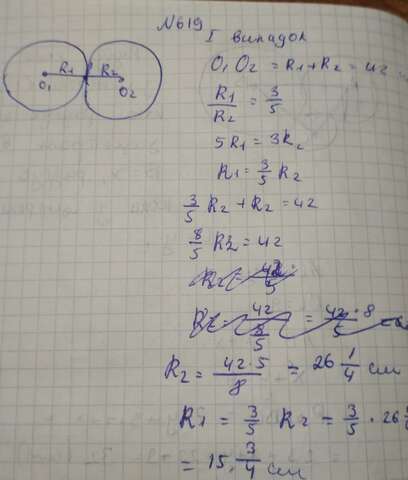 №619
I випадок
R1 R2
O1 O2
O1 O2 = R1 + R2 = 42
R1/R2 = 3/5
5R1 = 3R2
R1 = 3/5 R2
3/5 R2 + R2 = 42
8/5 R2 = 42
R2 = 42·5/8 = 26 1/4 см
R1 = 3/5 R2 = 3/5 · 26
= 15. 3/4 см